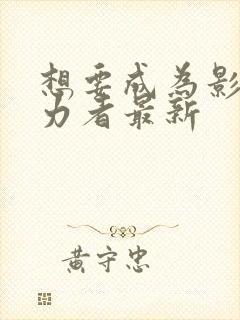 想要成为影
力者最新
黄守忠